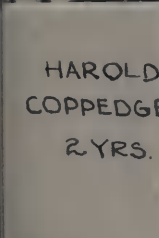 HAROLD
COPPEDGE
2 YRS.